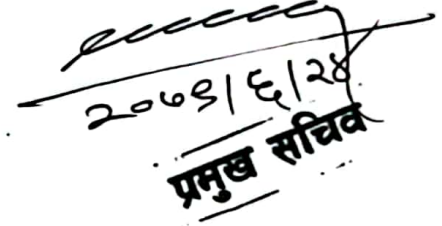 २०७९।६।२४
प्रमुख सचिव